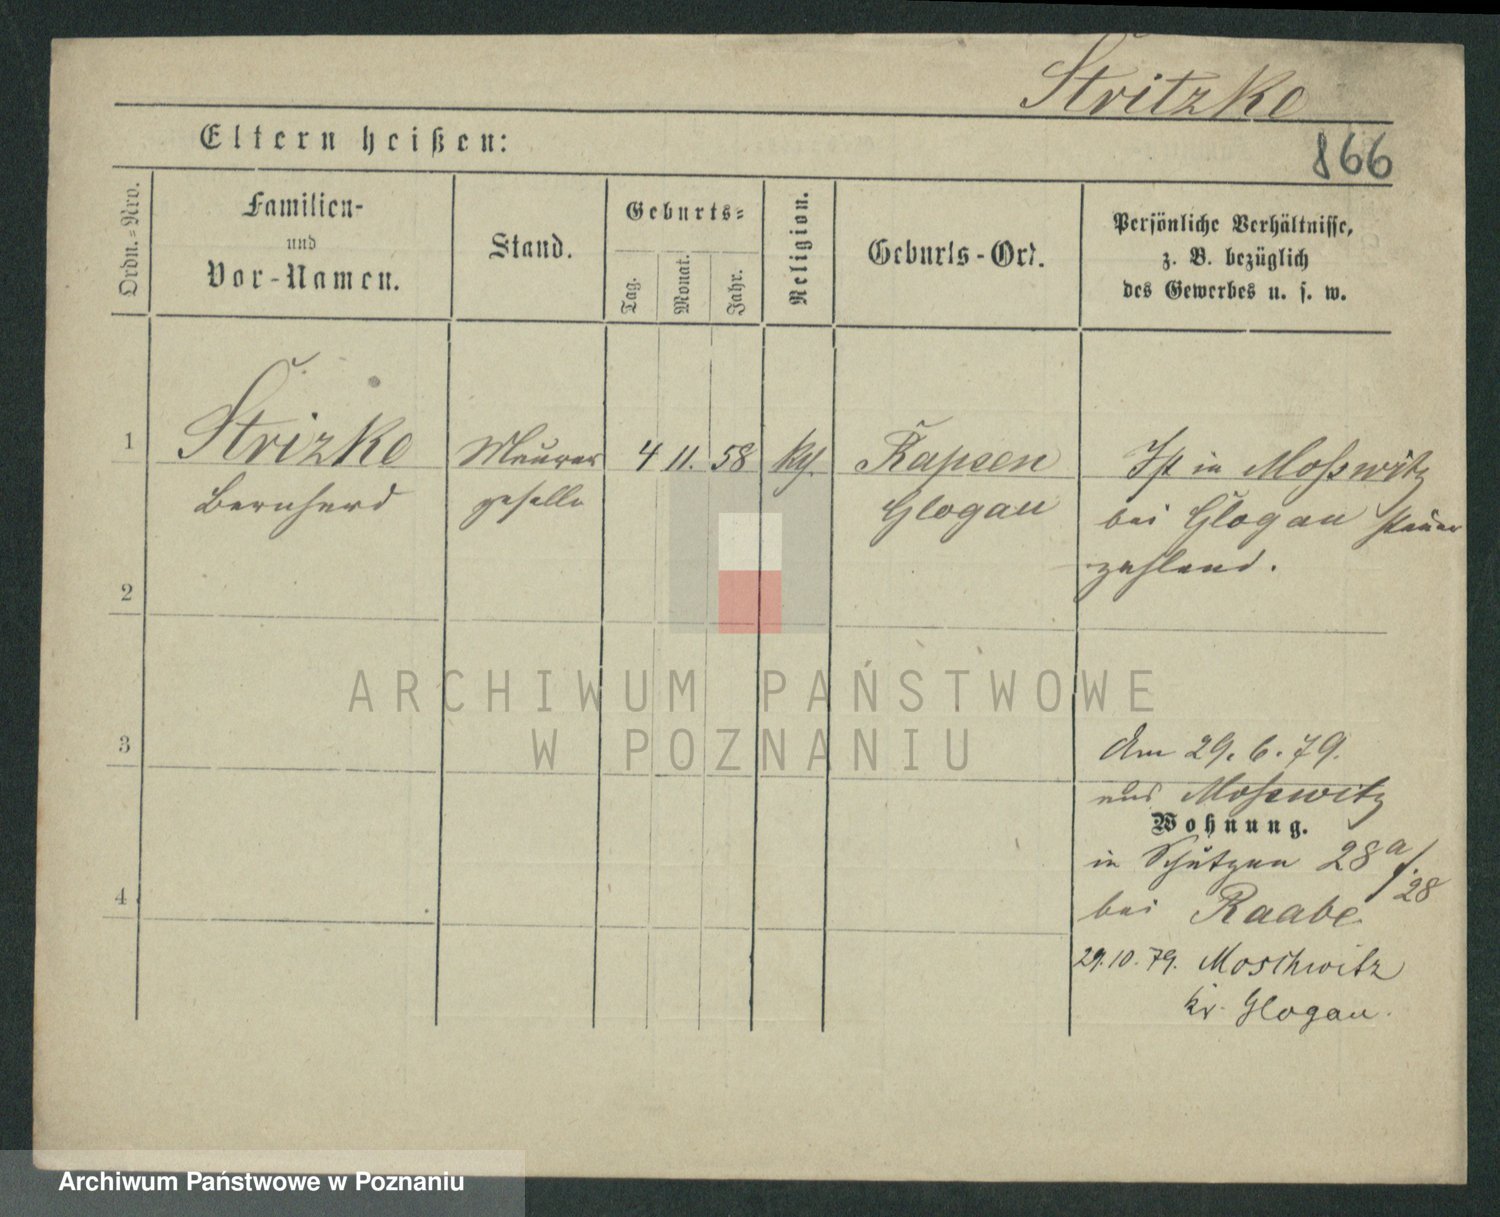 Stritzke
866
Eltern heißen:
Ordn.=Nro.
Familien-
und
Vor-Namen.
Stand.
Geburts=
Tag.
Monat.
Jahr.
Religion.
Geburts-Ort.
Persönliche Verhältnisse,
z. B. bezüglich
des Gewerbes u. s. w.
1 Strizke Maurer 4 11. 58 kth. Kapsen Ist in Mosswitz
Bernhard geselle Glogau bei Glogau steuer
zahlend.
2
ARCHIWUM PAŃSTWOWE
W POZNANIU
3
Am 29. 6. 79.
aus Mosswitz
Wohnung.
in Schützen 28 a/28
4
bei Raabe
29.10.79. Moschwitz
kr. Glogau.
Archiwum Państwowe w Poznaniu